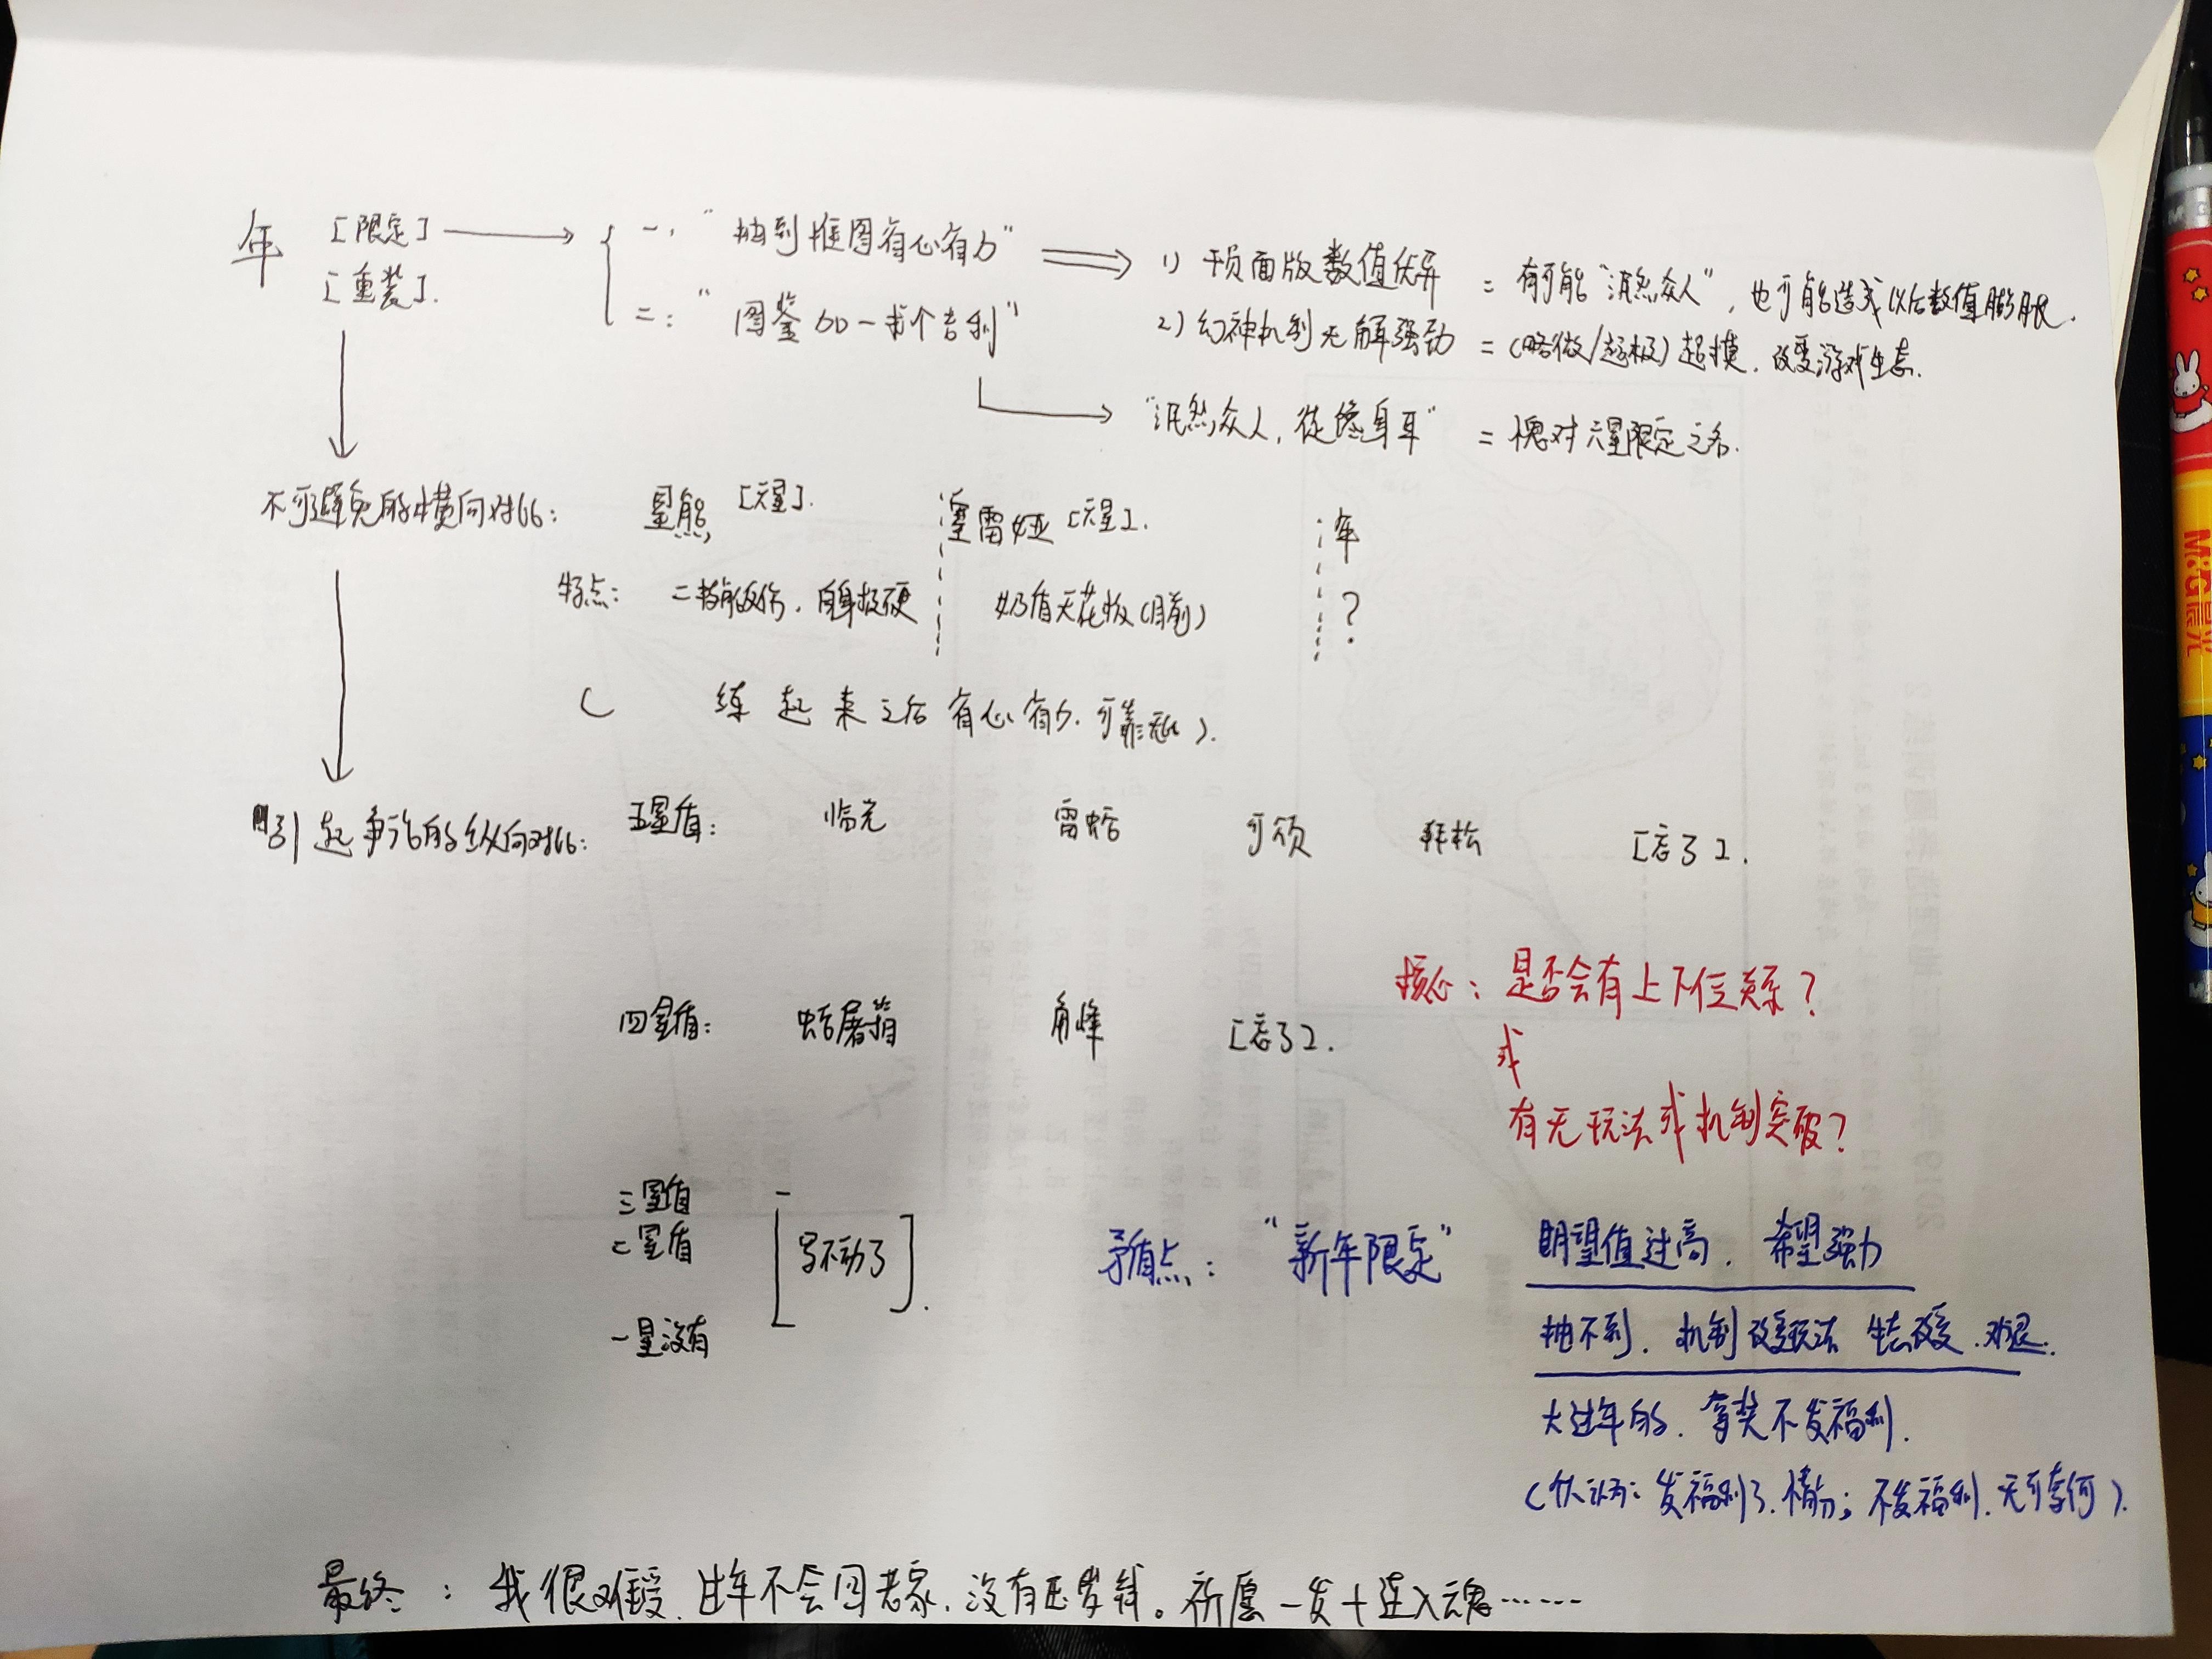 年 [限定] → 一、"抽到推图有心有力" ⇒ 1) 面版数值优异 = 有可能"泯然众人"，也可能造成以后数值膨胀.
[重装].
二："图鉴 60 一求个吉利"
2) 幻神机制无解强劲 = (略微/超极)超模，改变游戏生态.
"泯然众人，徒馋身耳" = 愧对六星限定之名.
不可避免的横向对比： 星熊 [六星]. 塞雷娅 [六星]. 年
特点： 二技能反伤，自身极硬 奶盾天花板(目前) ?
( 练起来之后有心有力.可靠无比).
引起争论的纵向对比： 五星盾： 临光 雷蛇 可颂 拜松 [忘了].
四星盾： 蛇屠箱 角峰 [忘了].
核心：是否会有上下位关系?
或
有无玩法或机制突破?
三星盾
二星盾
一星没有
[写不动了].
矛盾点： "新年限定" 期望值过高. 希望强力
抽不到. 机制改变玩法 生态改变.
大过年的. 拿奖不发福利.
(个人认为：发福利了.情分；不发福利.无可奈何).
最终：我很难受.过年不会回老家.没有压岁钱。祈愿一发十连入魂……
M&G晨光